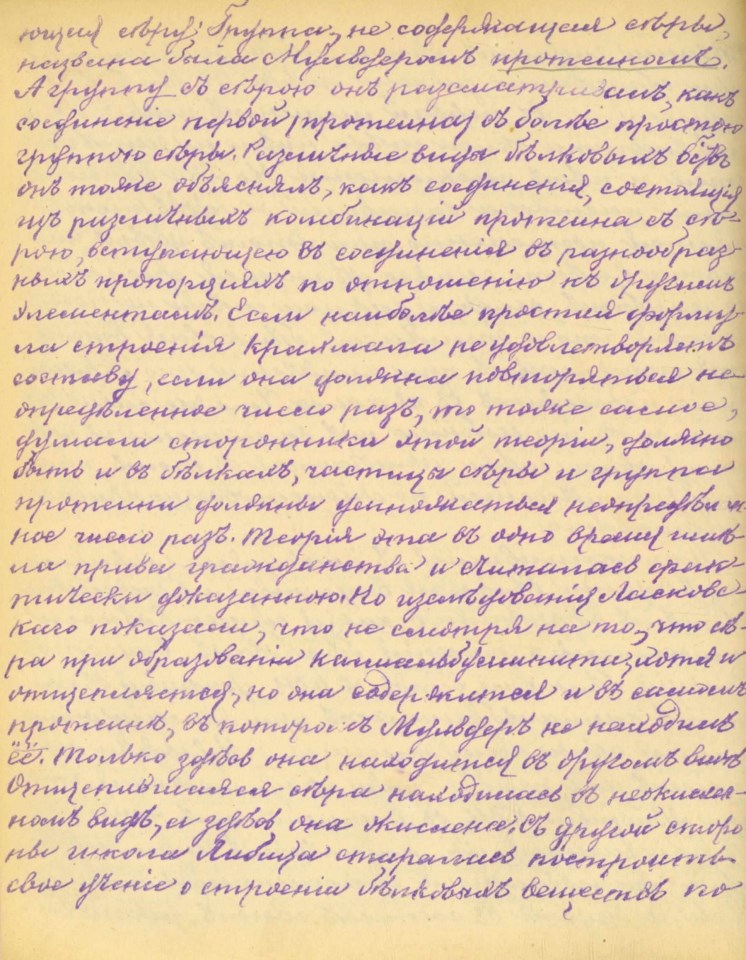 ющуюся сѣру. Группа, не содержащая сѣры,
названа была Мульдеромъ протеиномъ.
А группу съ сѣрою онъ разсматривалъ, какъ
соединеніе первой (протеина) съ болѣе простою
группою сѣры. Различные виды бѣлковыхъ
онъ тоже объяснялъ, какъ соединенія, состоящія
изъ различныхъ комбинацій протеина съ сѣ-
рою, вступающею въ соединенія въ разнообраз
ныхъ пропорціяхъ по отношенію къ другимъ
элементамъ. Если наиболѣе простая форму
ла строенія крахмала не удовлетворяетъ
составу, если она должна повторяться не-
опредѣленное число разъ, то тоже самое,
думали сторонники этой теоріи, должно
быть и въ бѣлкахъ, частицы сѣры и группа
протеина должны умножаться неопредѣлен
ное число разъ. Теорія эта въ одно время имѣ-
ла права гражданства и считалась фак-
тически доказанною. Но изслѣдованія Ласковс-
каго показали, что не смотря на то, что сѣ-
ра при образованіи хотя и
отщепляется, но она содержится и въ самомъ
протеинѣ, въ которомъ Мульдеръ не находилъ
её. Только здѣсь она находится въ другомъ видѣ
Отщепившаяся сѣра находилась въ неокислен-
номъ видѣ, а здѣсь она окислена. Съ другой сторо
ны школа Либиха старалась построить
свое ученіе о строеніи бѣлковыхъ веществъ по